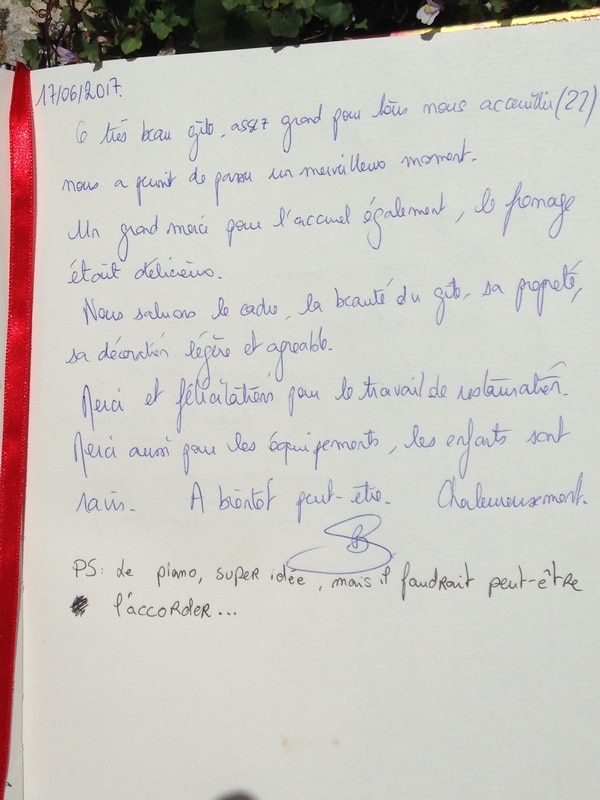 17/06/2017.
Ce très beau gîte, assez grand pour tous nous acceuillir (27)
nous a permit de passer un merveilleux moment.
Un grand merci pour l'accueil également, le fromage
était délicieux.
Nous saluons le cadre, la beauté du gîte, sa propreté,
sa décoration légère et agréable.
Merci et félicitations pour le travail de restauration.
Merci aussi pour les équipements, les enfants sont
ravis. A bientôt peut-être. Chaleureusement.
PS: Le piano, super idée, mais il faudrait peut-être
l'accorder...